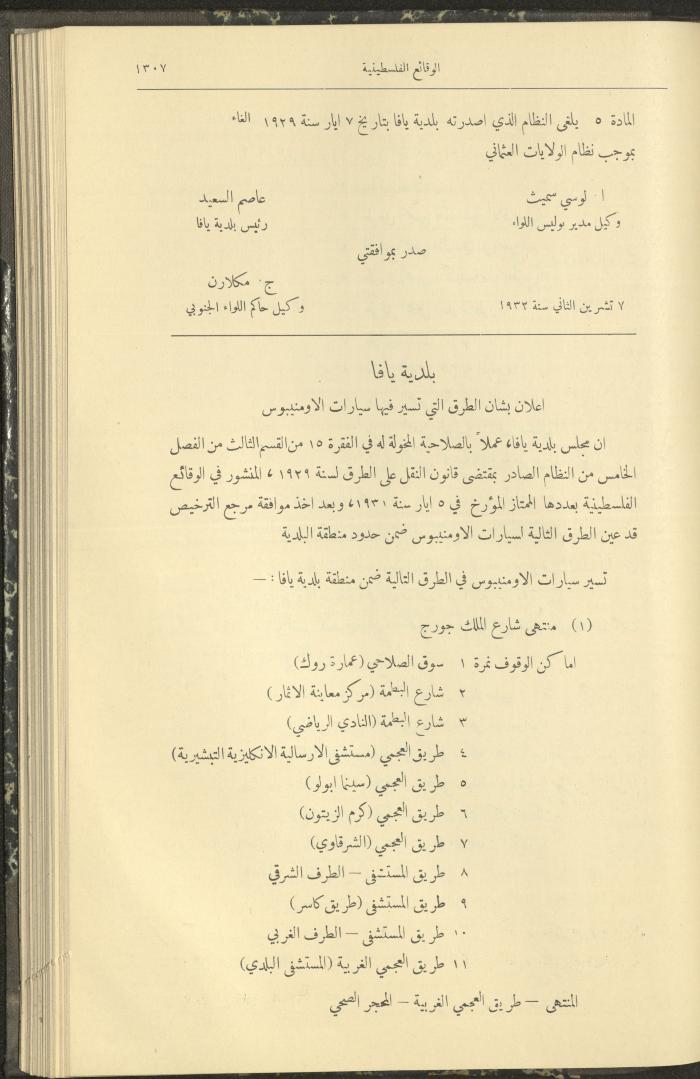 ١٣٠٧ الوقائع الفلسطينية
المادة ٥ يلغى النظام الذي اصدرته بلدية يافا بتاريخ ٧ ايار سنة ١٩٢٩ الغاء
بموجب نظام الولايات العثماني
ا. لوسي سميث عاصم السعيد
وكيل مدير بوليس اللواء رئيس بلدية يافا
صدر بموافقتي
ج. مكلارن
٧ تشرين الثاني سنة ١٩٣٢ وكيل حاكم اللواء الجنوبي
بلدية يافا
اعلان بشان الطرق التي تسير فيها سيارات الاومنيبوس
ان مجلس بلدية يافا، عملاً بالصلاحية المخولة له في الفقرة ١٥ من القسم الثالث من الفصل
الخامس من النظام الصادر بمقتضى قانون النقل على الطرق لسنة ١٩٢٩ ، المنشور في الوقائع
الفلسطينية بعددها الممتاز المؤرخ في ٥ ايار سنة ١٩٣١، وبعد اخذ موافقة مرجع الترخيص
قد عين الطرق التالية لسيارات الاومنيبوس ضمن حدود منطقة البلدية
تسير سيارات الاومنيبوس في الطرق التالية ضمن منطقة بلدية يافا : —
(١) منتهى شارع الملك جورج
اماكن الوقوف نمرة ١ سوق الصلاحي (عمارة روك)
٢ شارع البطمة (مركز معاينة الاثمار)
٣ شارع البطمة (النادي الرياضي)
٤ طريق العجمي (مستشفى الارسالية الانكليزية التبشيرية)
٥ طريق العجمي (سينما ابولو)
٦ طريق العجمي (كرم الزيتون)
٧ طريق العجمي (الشرقاوي)
٨ طريق المستشفى — الطرف الشرقي
٩ طريق المستشفى (طريق كاسر)
١٠ طريق المستشفى — الطرف الغربي
١١ طريق العجمي الغربية (المستشفى البلدي)
المنتهى — طريق العجمي الغربية — المحجر الصحي